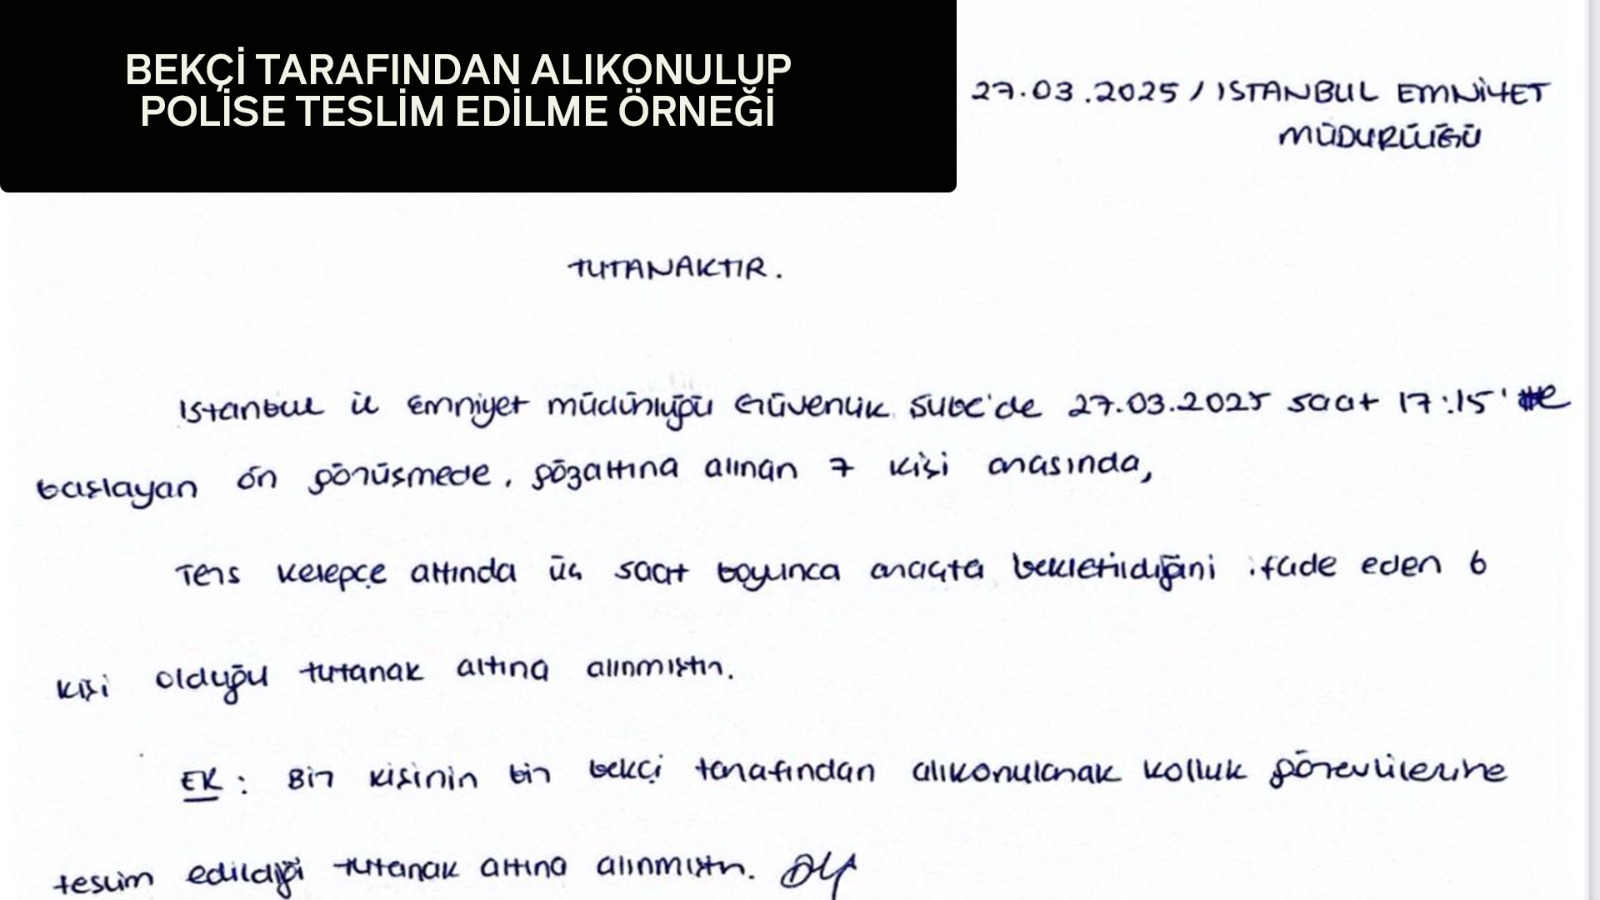 BEKÇİ TARAFINDAN ALIKONULUP
POLİSE TESLİM EDİLME ÖRNEĞİ
27.03.2025 / ISTANBUL EMNİYET
MÜDÜRLÜĞÜ
TUTANAKTIR.
Istanbul il emniyet müdürlüğü Güvenlik Şube'de 27.03.2025 saat 17:15'te
başlayan ön görüşmede, gözaltına alınan 7 kişi arasında,
Ters kelepçe altında üç saat boyunca araçta bekletildiğini ifade eden 6
kişi olduğu tutanak altına alınmıştır.
EK: Bir kişinin bir bekçi tarafından alıkonularak kolluk görevlilerine
teslim edildiği tutanak altına alınmıştır.